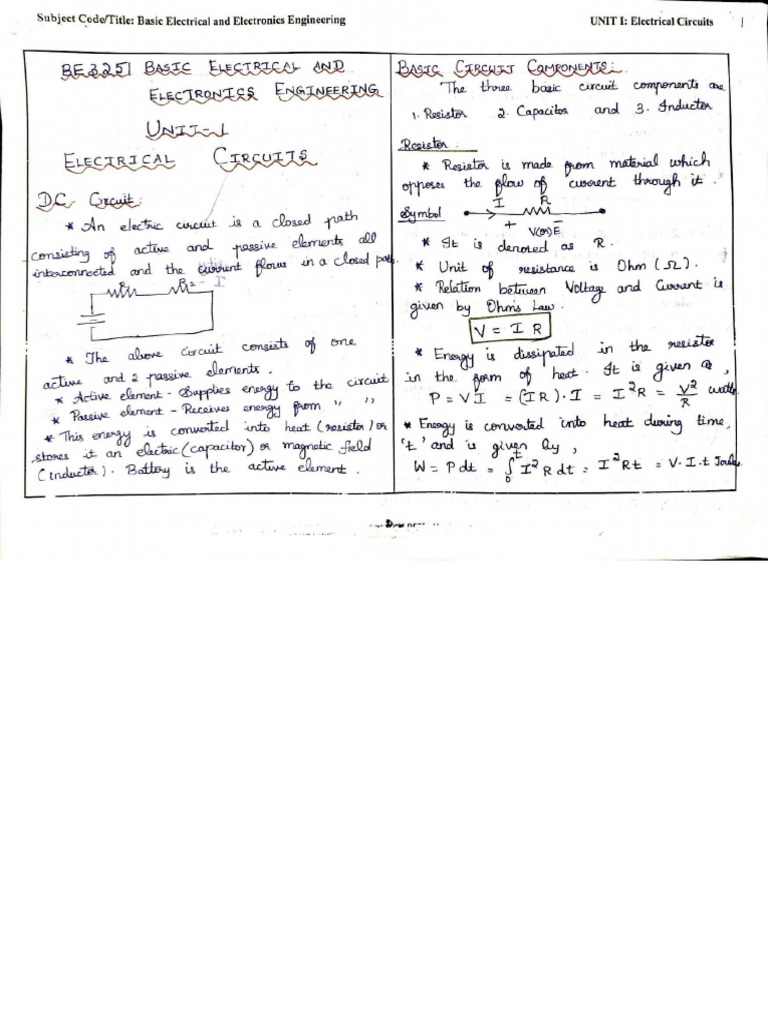 Subject Code/Title: Basic Electrical and Electronics Engineering
UNIT I: Electrical Circuits
1
BE3251 BASIC ELECTRICAL AND
ELECTRONICS ENGINEERING
UNIT-1
ELECTRICAL CIRCUITS
DC Circuit:
* An electric circuit is a closed path
consisting of active and passive elements all
interconnected and the current flows in a closed path.
R1 R2 I
* The above circuit consists of one
active and 2 passive elements.
* Active element - Supplies energy to the circuit
* Passive element - Receives energy from " "
* This energy is converted into heat (resistor) or
stores it an electric (capacitor) or magnetic field
(inductor). Battery is the active element.
BASIC CIRCUIT COMPONENTS:
The three basic circuit components are
1. Resistor 2. Capacitor and 3. Inductor
Resistor:
* Resistor is made from material which
opposes the flow of current through it.
Symbol I R
+ V(or)E -
* It is denoted as R.
* Unit of resistance is Ohm (Ω).
* Relation between Voltage and Current is
given by Ohm's Law.
V = I R
* Energy is dissipated in the resistor
in the form of heat. It is given as,
P = VI = (IR).I = I²R = V²/R watts
* Energy is converted into heat during time,
't' and is given by,
W = Pdt = ∫₀ᵗ I²R dt = I²Rt = V.I.t Joules